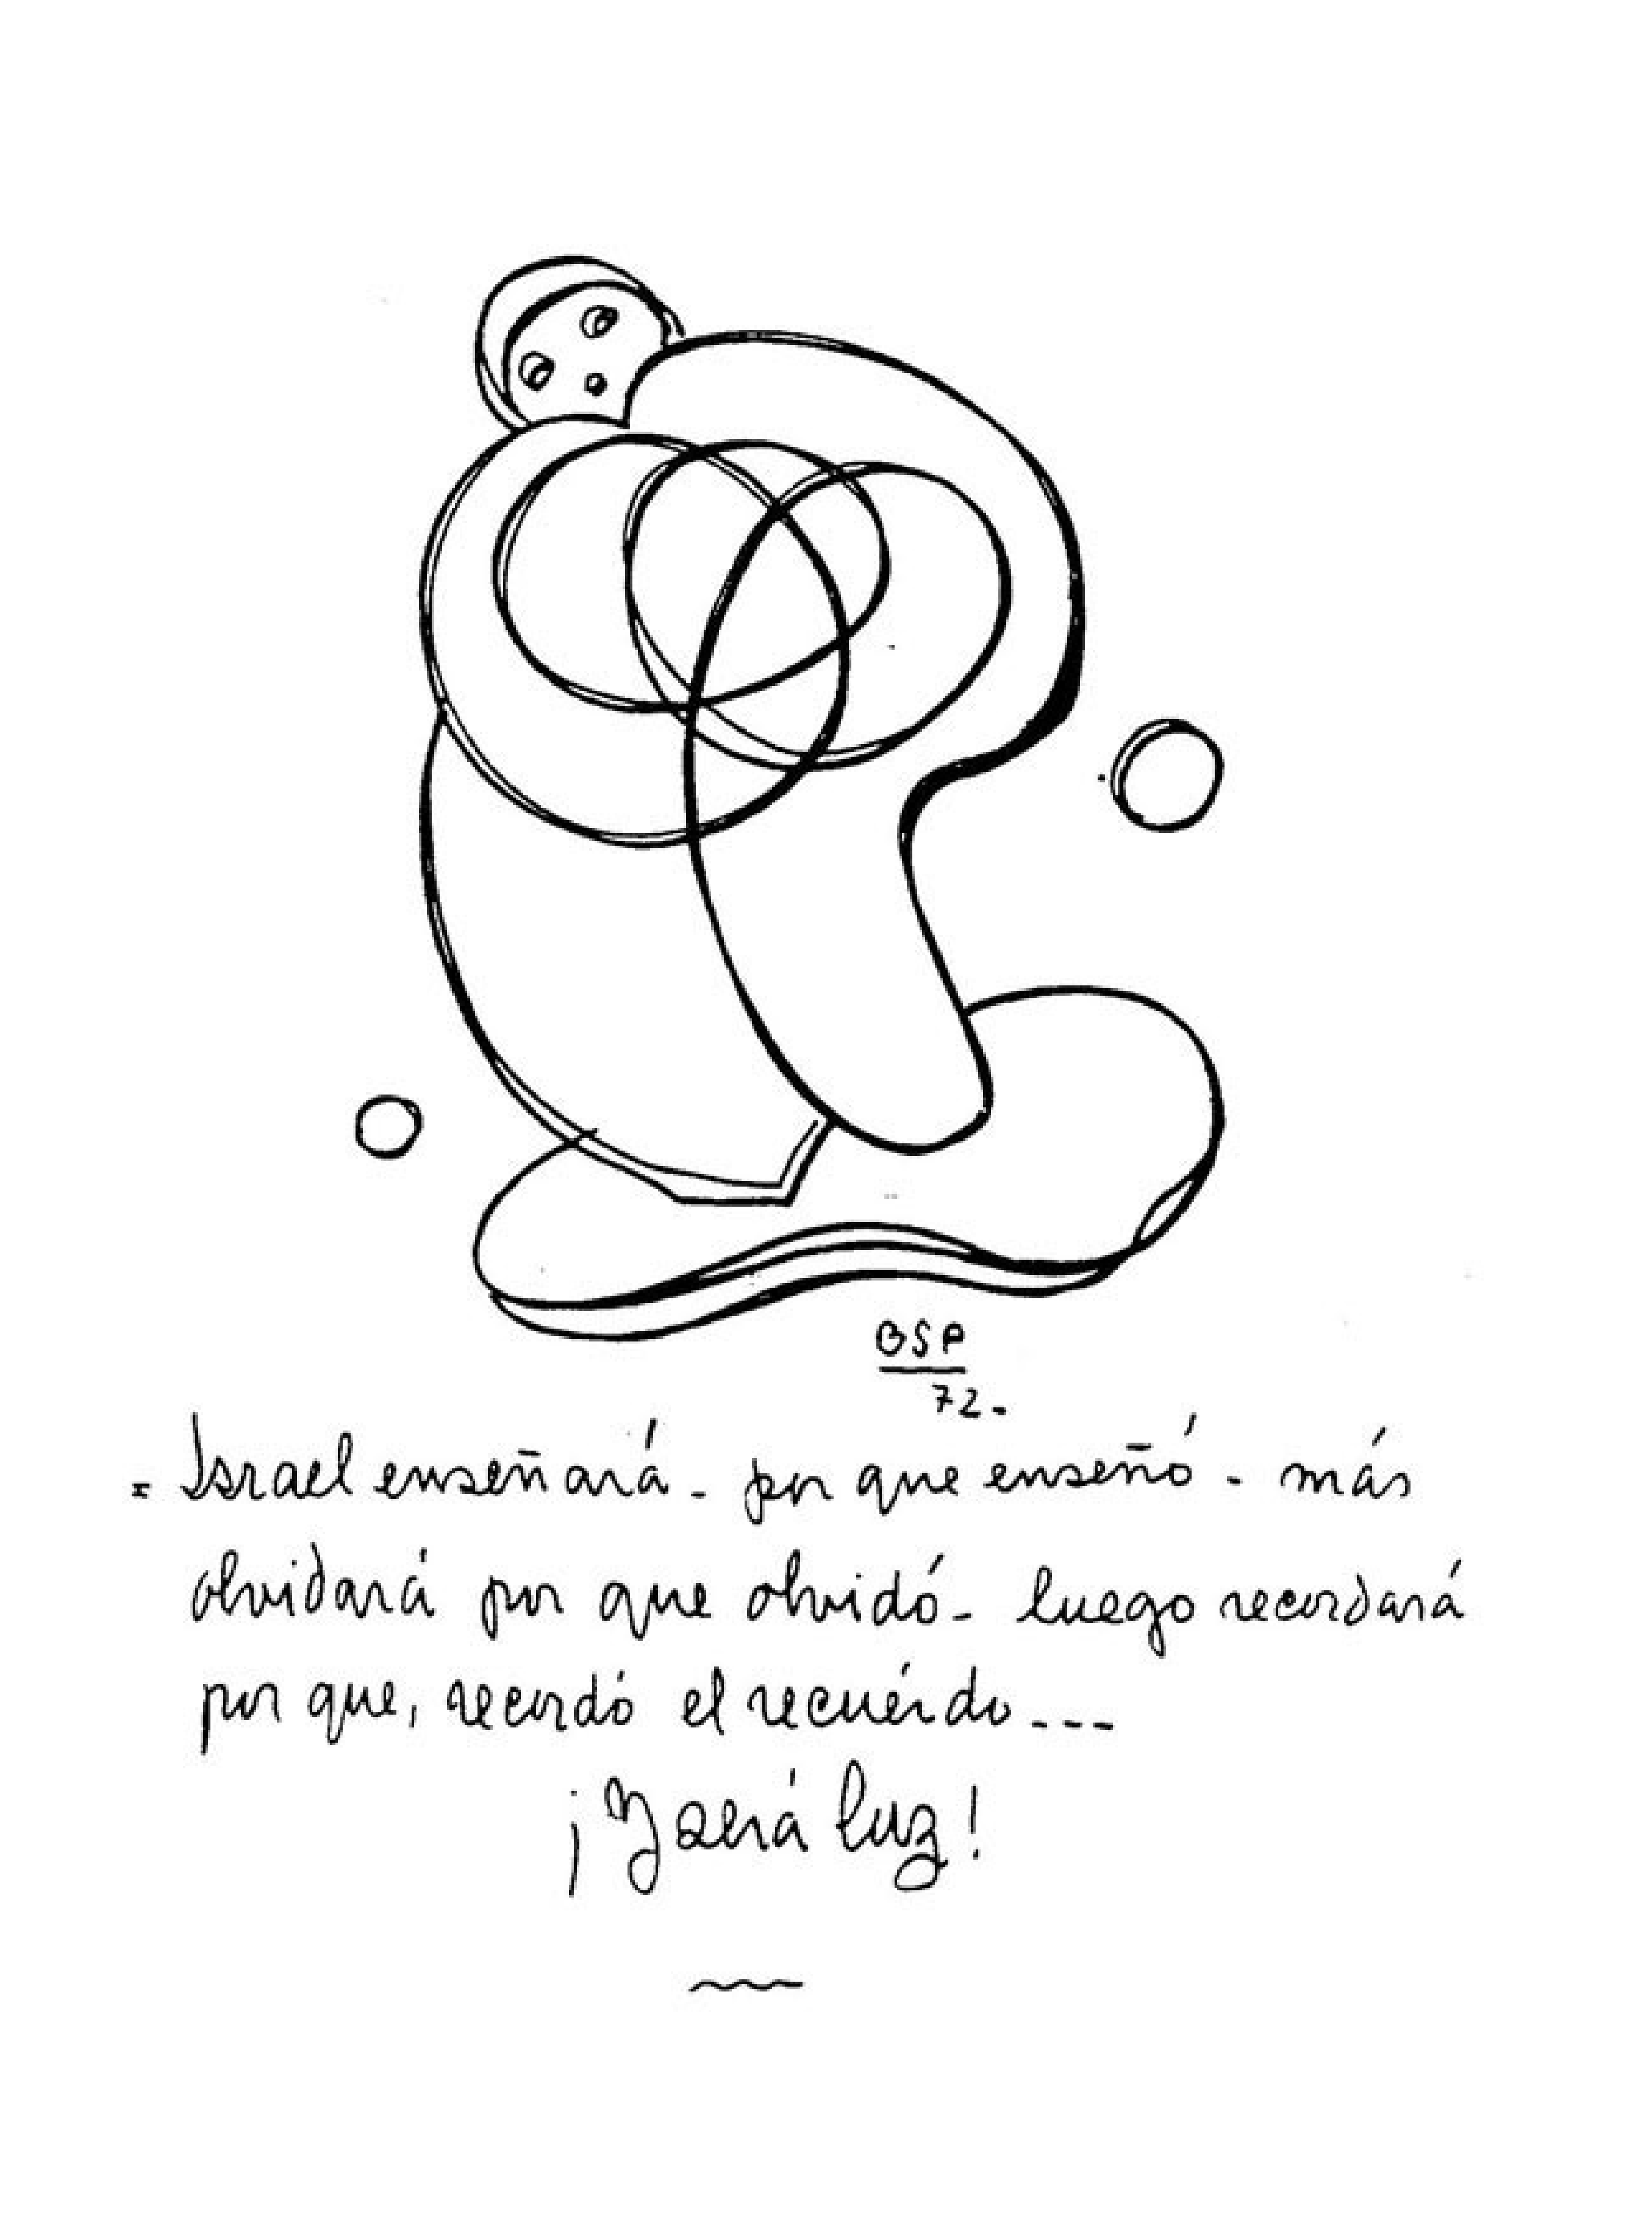 BSP
72-
= Israel enseñará - por que enseñó - más
olvidará por que olvidó - luego recordará
por que, recordó el recuérdo ---
¡Y será luz!